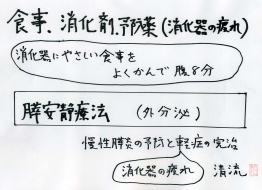 食事、消化剤、予防薬(消化器の疲れ)
消化器にやさしい食事を
よくかんで腹8分
膵安静療法 (外分泌)
慢性膵炎の予防と軽症の完治
消化器の疲れ 清流